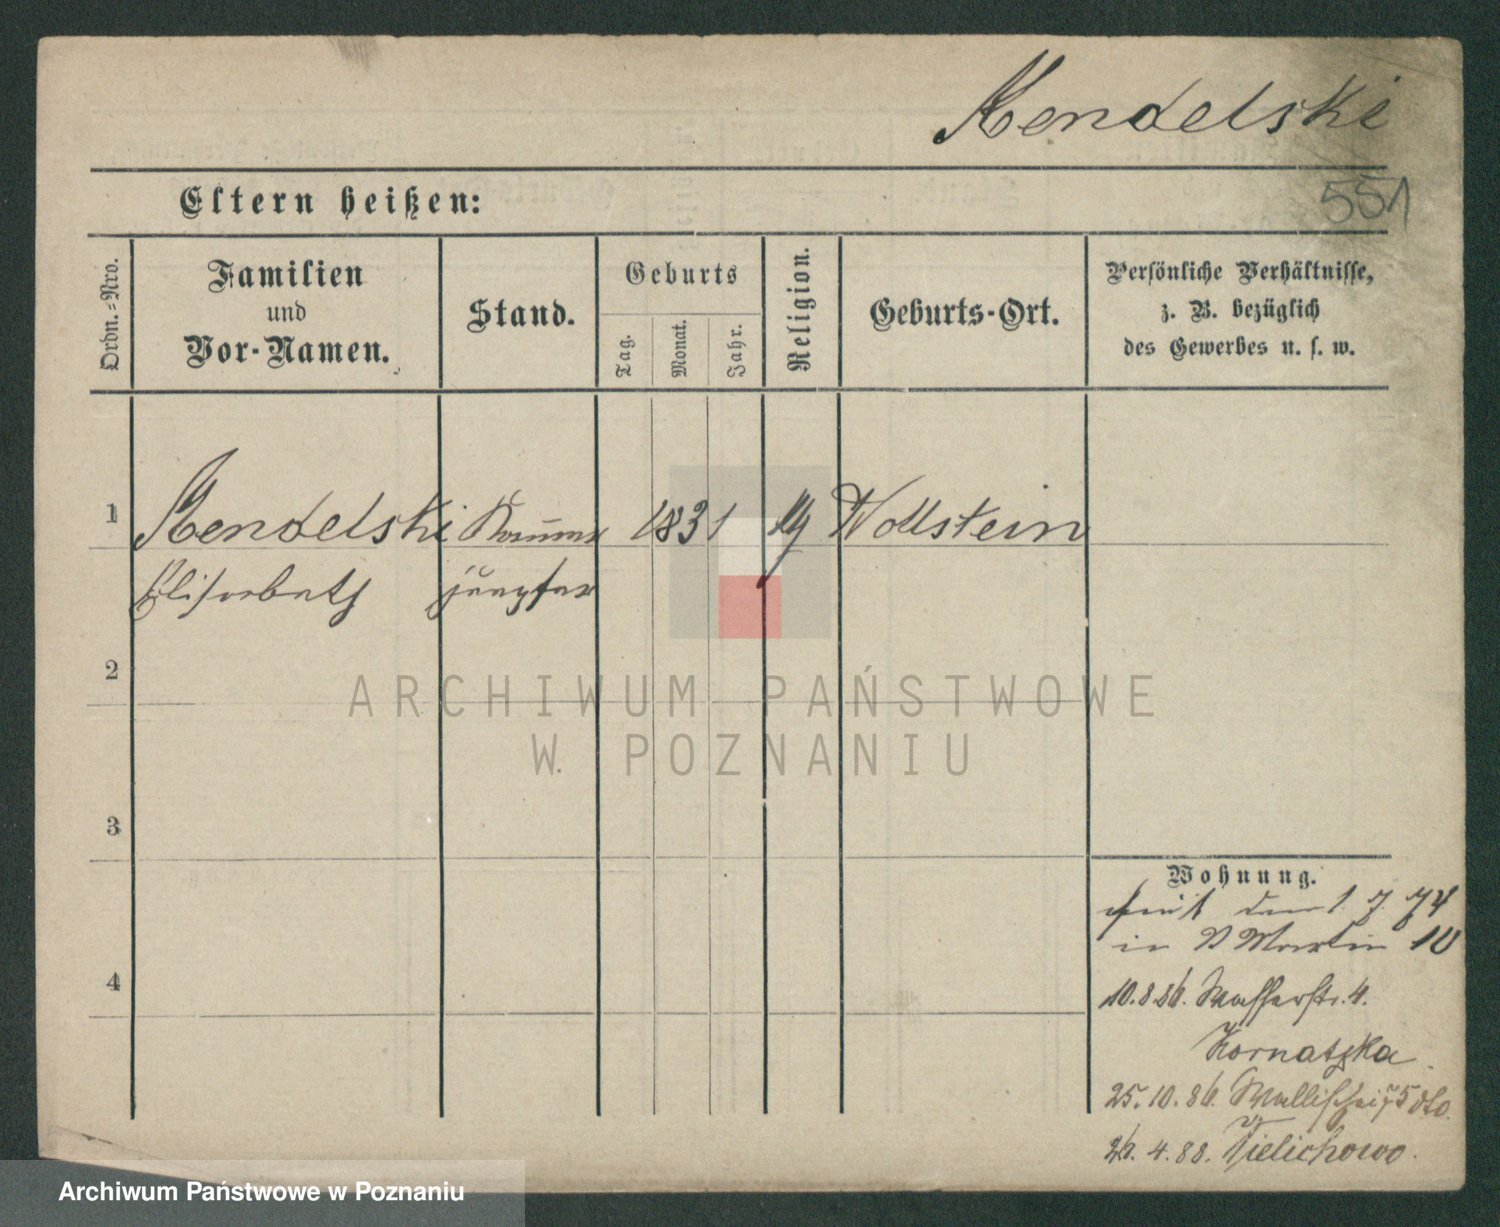 Mendelski
551
Eltern heißen:
Ordn.-Nro.
Familien
und
Vor-Namen.
Stand.
Geburts
Tag.
Monat.
Jahr.
Religion.
Geburts-Ort.
Persönliche Verhältnisse,
z. B. bezüglich
des Gewerbes u. s. w.
1
Mendelski
1831
Wollstein
Elisabeth
jungfer
2
3
4
Wohnung.
1. 7. 74
in S Martin 10
10.8.86. Wasserstr. 4.
Kornatzka
25.10.86. Wallischei 75
26. 4. 88. Wielichowo.
ARCHIWUM PAŃSTWOWE
W POZNANIU
Archiwum Państwowe w Poznaniu